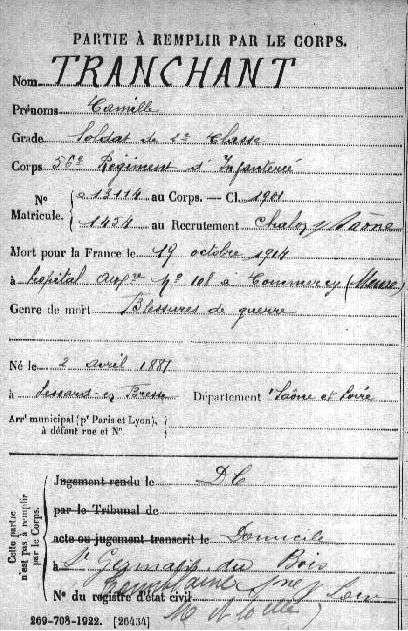 PARTIE À REMPLIR PAR LE CORPS.
Nom TRANCHANT
Prénoms Camille
Grade Soldat de 2e Classe
Corps 56e Régiment d'Infanterie
No Matricule. { 13114 au Corps. — Cl. 1901
1434 au Recrutement Chalon s/ Saône
Mort pour la France le 19 octobre 1914
à hôpital No 108 à Commercy (Meuse)
Genre de mort Blessures de guerre
Né le 2 avril 1881
à Sens en Bresse Département Saône et Loire
Arrt municipal (pr Paris et Lyon), à défaut rue et No.
Cette partie n'est pas à remplir par le Corps.
Jugement rendu le DC
par le Tribunal de
acte ou jugement transcrit le Domicile
à St Germain du Bois
No du registre d'état civil
269-708-1922. [26434]